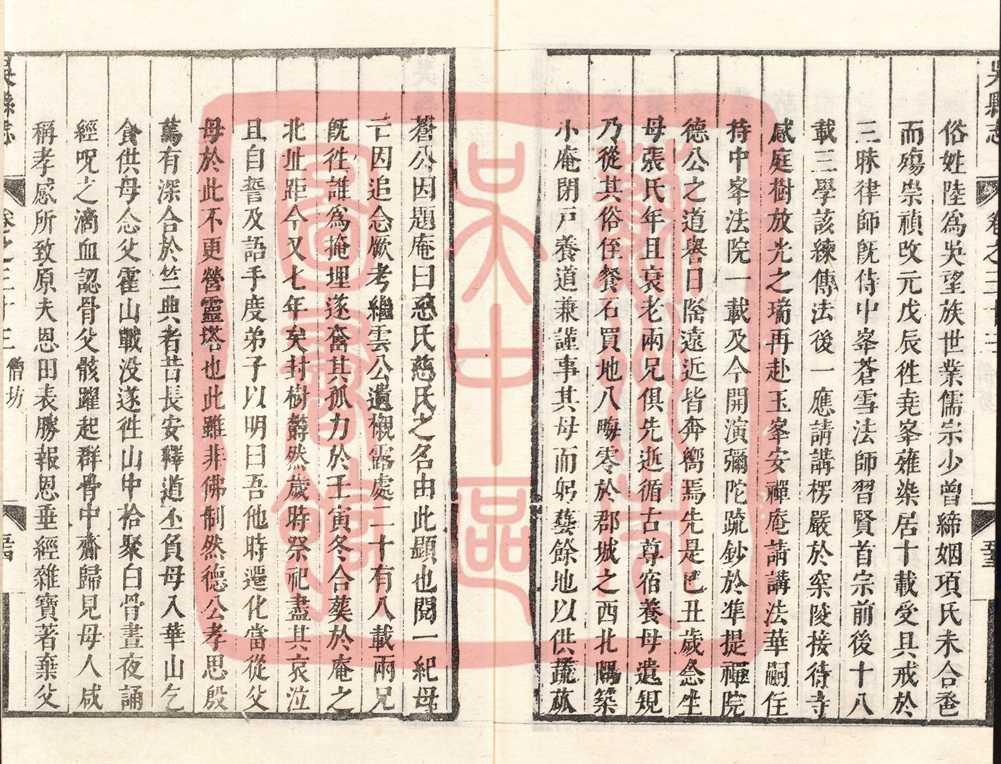 吳縣志
卷之三十三
俗姓陸爲吳望族世業儒宗少曾締姻項氏未合巹
而殤崇禎改元戊辰徃堯峯薙染居十載受具戒於
三昧律師旣侍中峯蒼雪法師習賢首宗前後十八
載三學該練傳法後一應請講楞嚴於穼陵接待寺
感庭樹放光之瑞再赴玉峯安禪庵請講法華嗣住
持中峯法院一載及今開演彌陀疏鈔於準提禪院
德公之道譽日隆遠近皆奔嚮焉先是己丑歲念生
母張氏年且衰老兩兄俱先逝循古尊宿養母遺規
乃從其俗侄餐石買地八畮零於郡城之西北隅築
小庵閉戸養道兼謹事其母而躬蓺餘地以供蔬菽
蒼公因題庵曰慈氏慈氏之名由此顯也閱一紀母
亡因追念厥考繼雲公遺櫬露處二十有八載兩兄
旣徃誰爲掩埋遂奮其孤力於壬寅冬合葬於庵之
北址距今又七年矣封樹蔚然歲時祭祀盡其哀泣
且自誓及語手度弟子以明曰吾他時遷化當從父
母於此不更營靈塔也此雖非佛制然德公孝思殷
篤有深合於竺典者昔長安釋道丕負母入華山乞
食供母念父霍山戰没遂徃山中拾聚白骨晝夜誦
經呪之滴血認骨父骸躍起群骨中齎歸見母人咸
稱孝感所致原夫恩田表勝報恩垂經雜寶著棄父
吳縣志
卷之三十三
僧坊
蘇州市
吳中區
圖書館